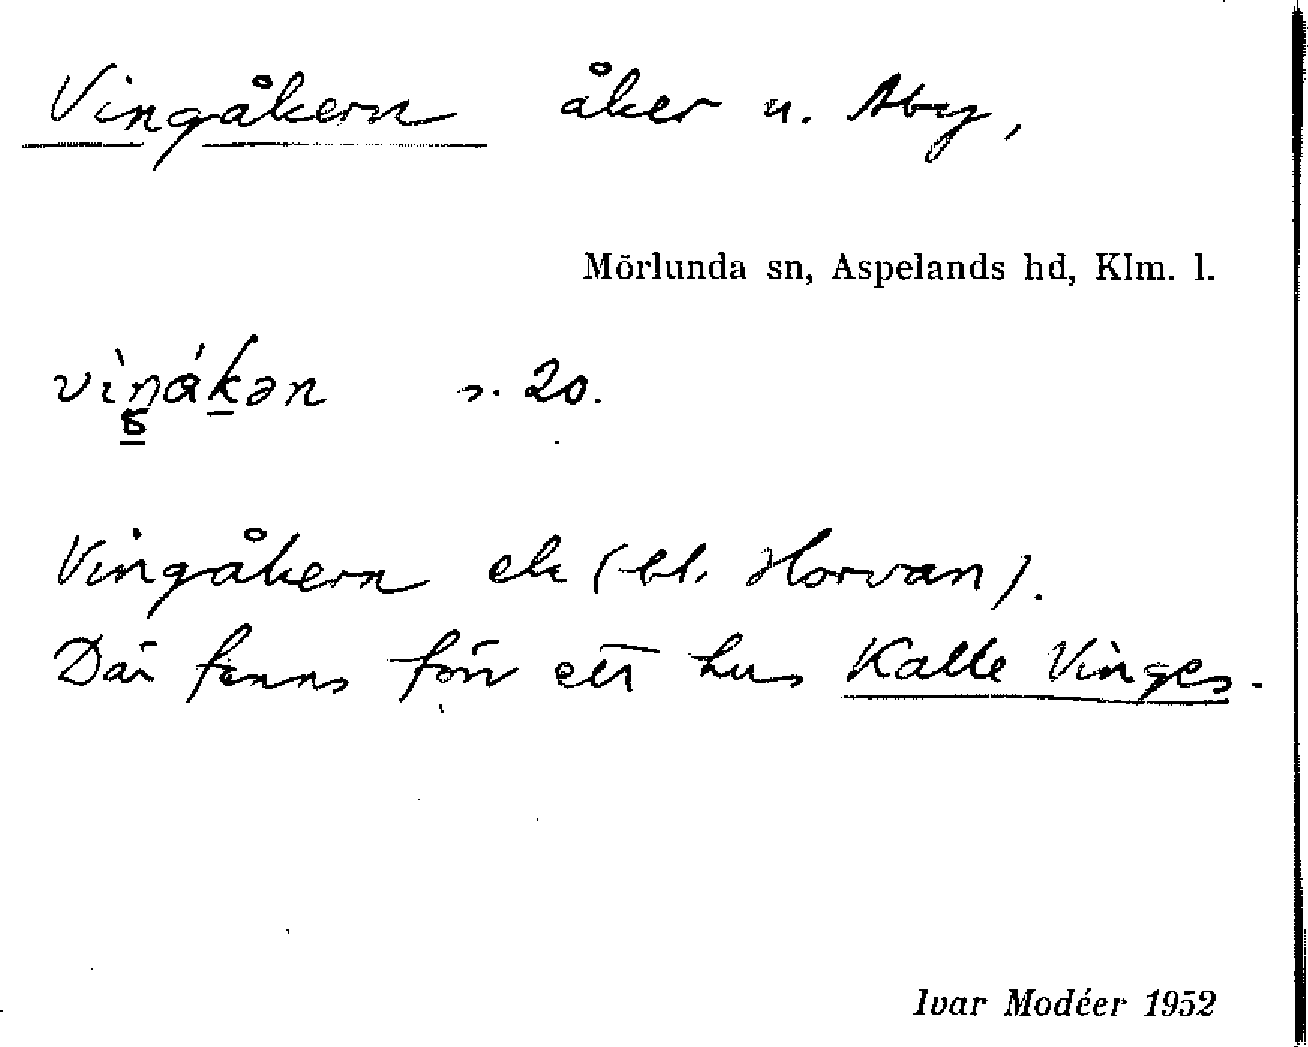 Vingåkern åker u. Aby,
Mörlunda sn, Aspelands hd, Klm. l.
vìŋákən s. 20.
Vingåkern ek (bl. Horvan).
Där fanns förr ett hus Kalle Vinges.
Ivar Modéer 1952